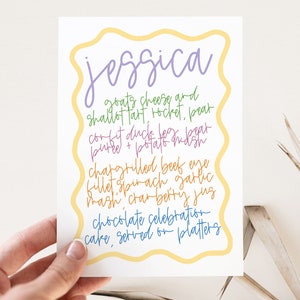 jessica
goats cheese and
shallot tart, rocket, pear
confit duck leg, pear
puree + potato mash
chargrilled beef eye
fillet, spinach, garlic
mash, cranberry jus
chocolate celebration
cake, served on platters